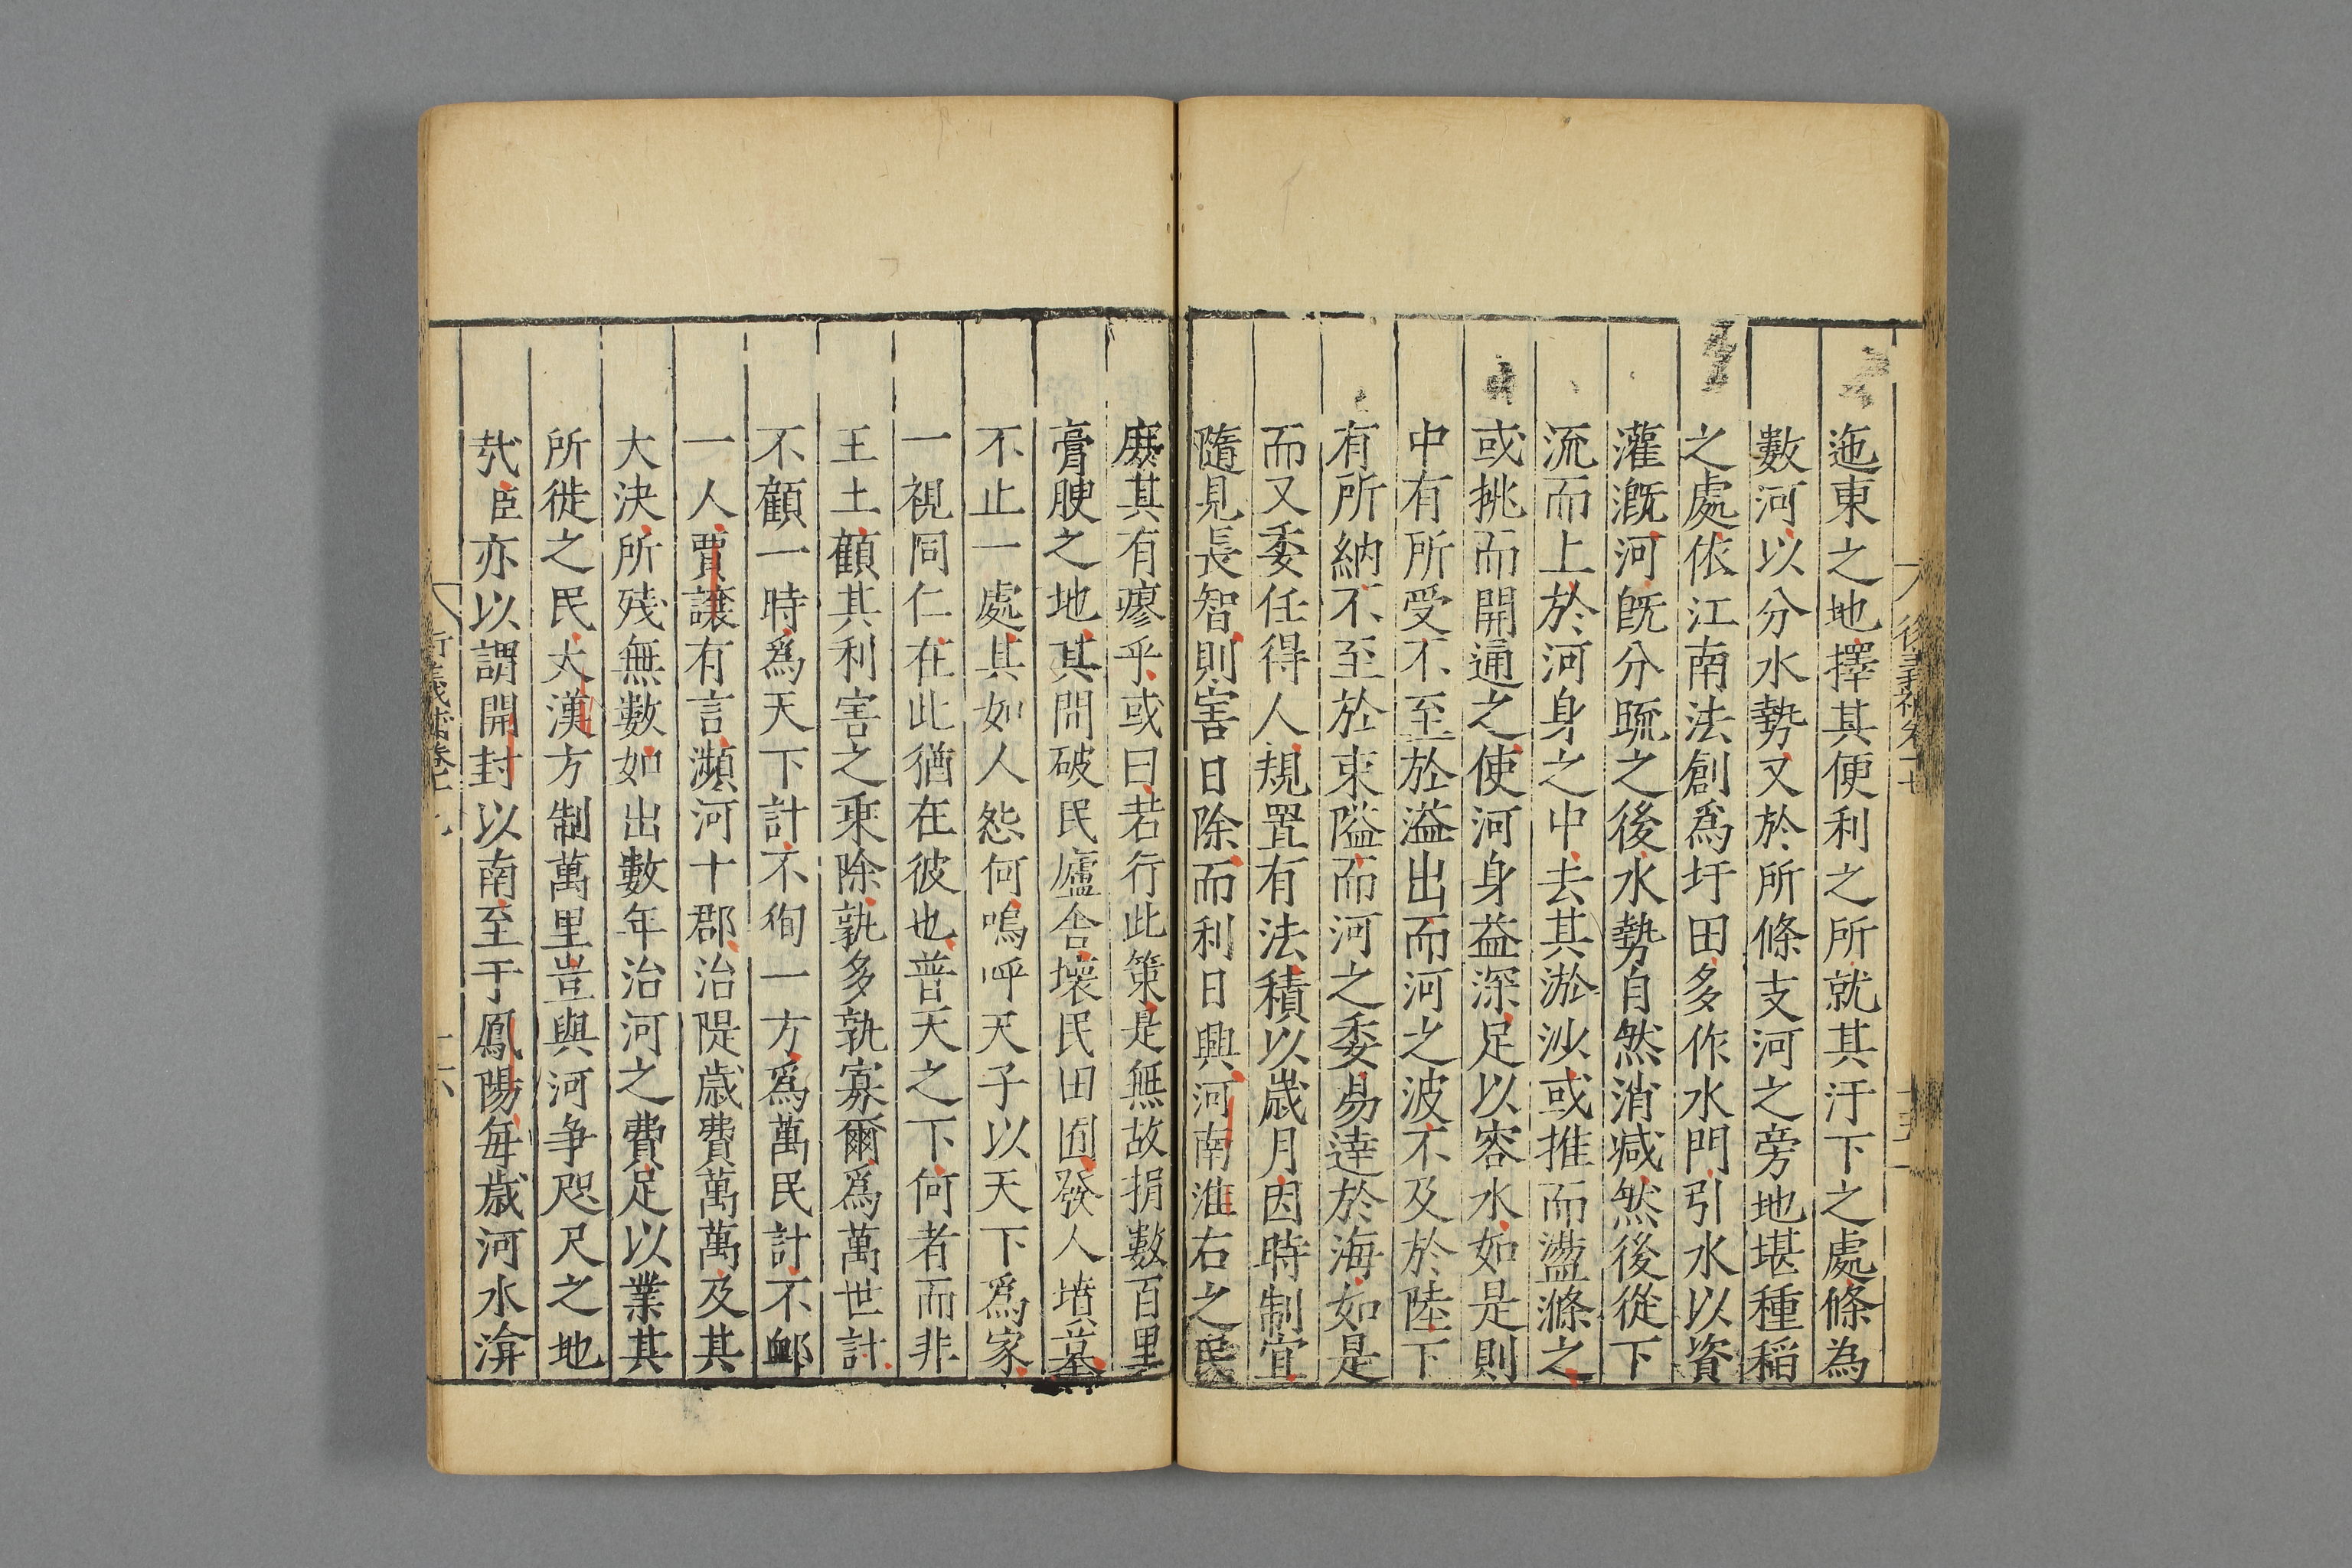 迤東之地擇其便利之所就其汙下之處條為
數河以分水勢又於所條支河之旁地堪種稲
之處依江南法創爲圩田多作水門引水以資
灌漑河旣分䟽之後水勢自然消减然後從下
流而上於河身之中去其淤沙或推而盪滌之
或挑而開通之使河身益深足以容水如是則
中有所受不至於溢出而河之波不及於陸下
有所納不至於束隘而河之委易達於海如是
而又委任得人規置有法積以歲月因時制宜
隨見長智則害日除而利日興河南淮右之民
庶其有瘳乎或曰若行此策是無故捐數百里
膏腴之地其間破民廬舍壞民田園發人墳墓
不止一處其如人怨何嗚呼天子以天下爲家
一視同仁在此猶在彼也普天之下何者而非
王土顧其利害之乘除孰多孰寡爾爲萬世計
不顧一時爲天下計不徇一方爲萬民計不䘏
一人賈讓有言瀕河十郡治隄歲費萬萬及其
大決所殘無數如出數年治河之費足以業其
所徙之民大漢方制萬里豈與河争咫尺之地
㢤臣亦以謂開封以南至于鳳陽每歲河水渰